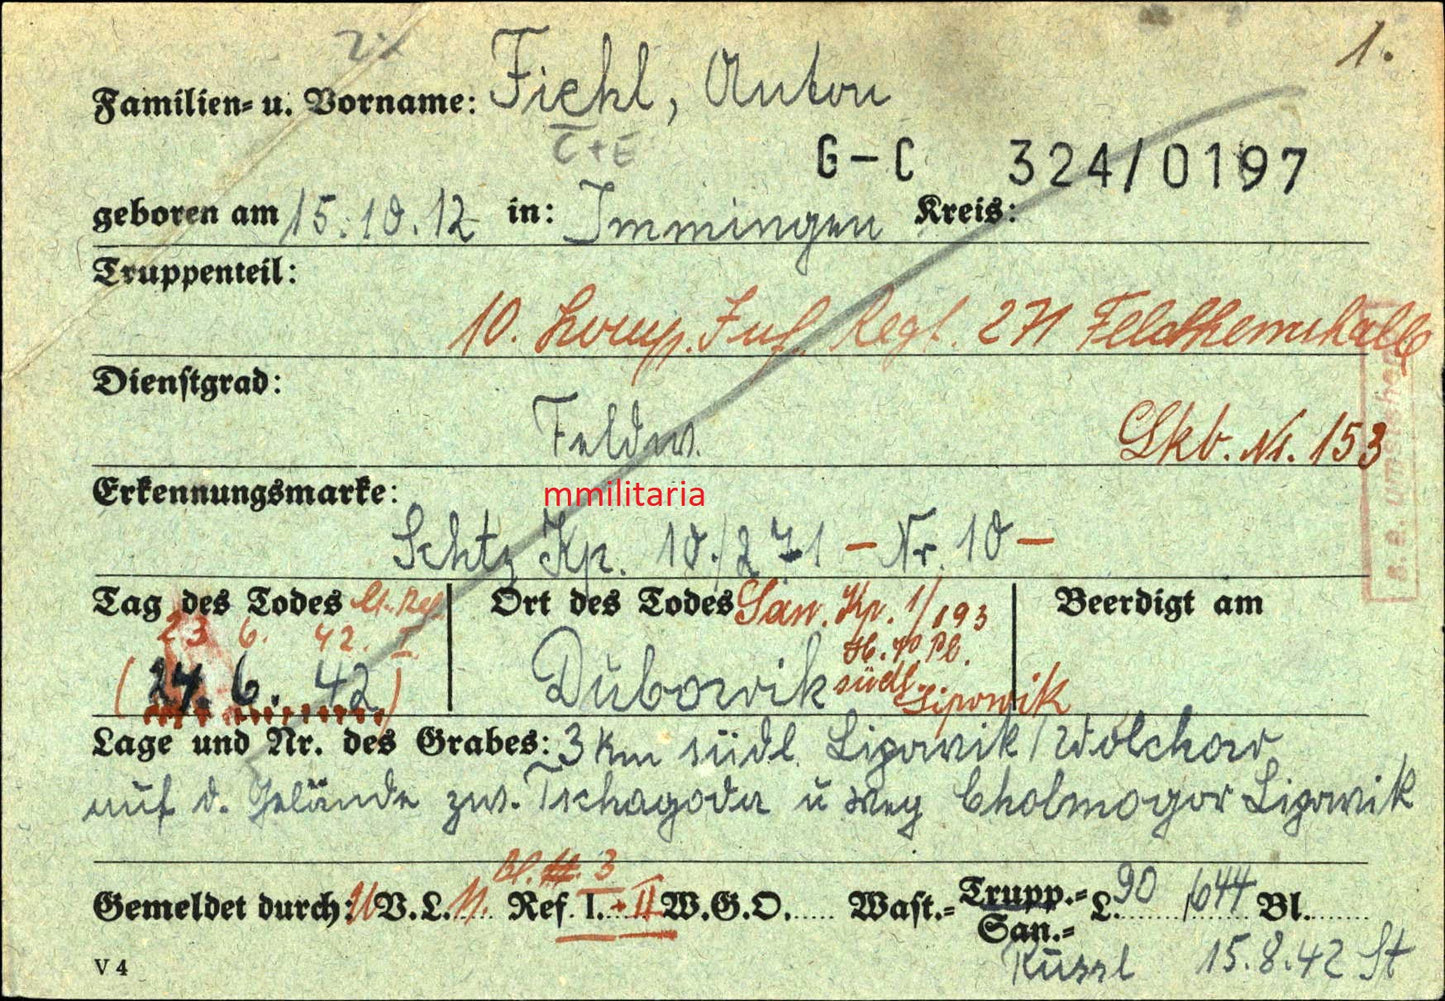 1.
Familien- u. Vorname: Fichl, Anton
C+E
G-C 324/0197
geboren am 15.10.12 in: Immingen Kreis:
Truppenteil:
10. Komp. Inf. Regt. 271 Feldherrnhalle
Dienstgrad:
Feldw. Lkb. Nr. 153
Erkennungsmarke:
mmilitaria
Schtz Kp. 10./271 - Nr. 10 -
Tag des Todes Ort des Todes San. Kp. 1/193 Beerdigt am
23 6. 42. I
H. V. Pl.
(24. 6. 42) Dubowik südl. Lipowik
Lage und Nr. des Grabes: 3 km südl. Lipowik/Wolchow
auf d. Gelände zw. Tschagoda u Weg Cholmogor Lipowik
Bl. 3
Gemeldet durch: V.L. Ref. I. + II W.G.O. Wast.- Trupp.- L. 90 /644 Bl.
San.-
Russl 15.8.42 St
V 4